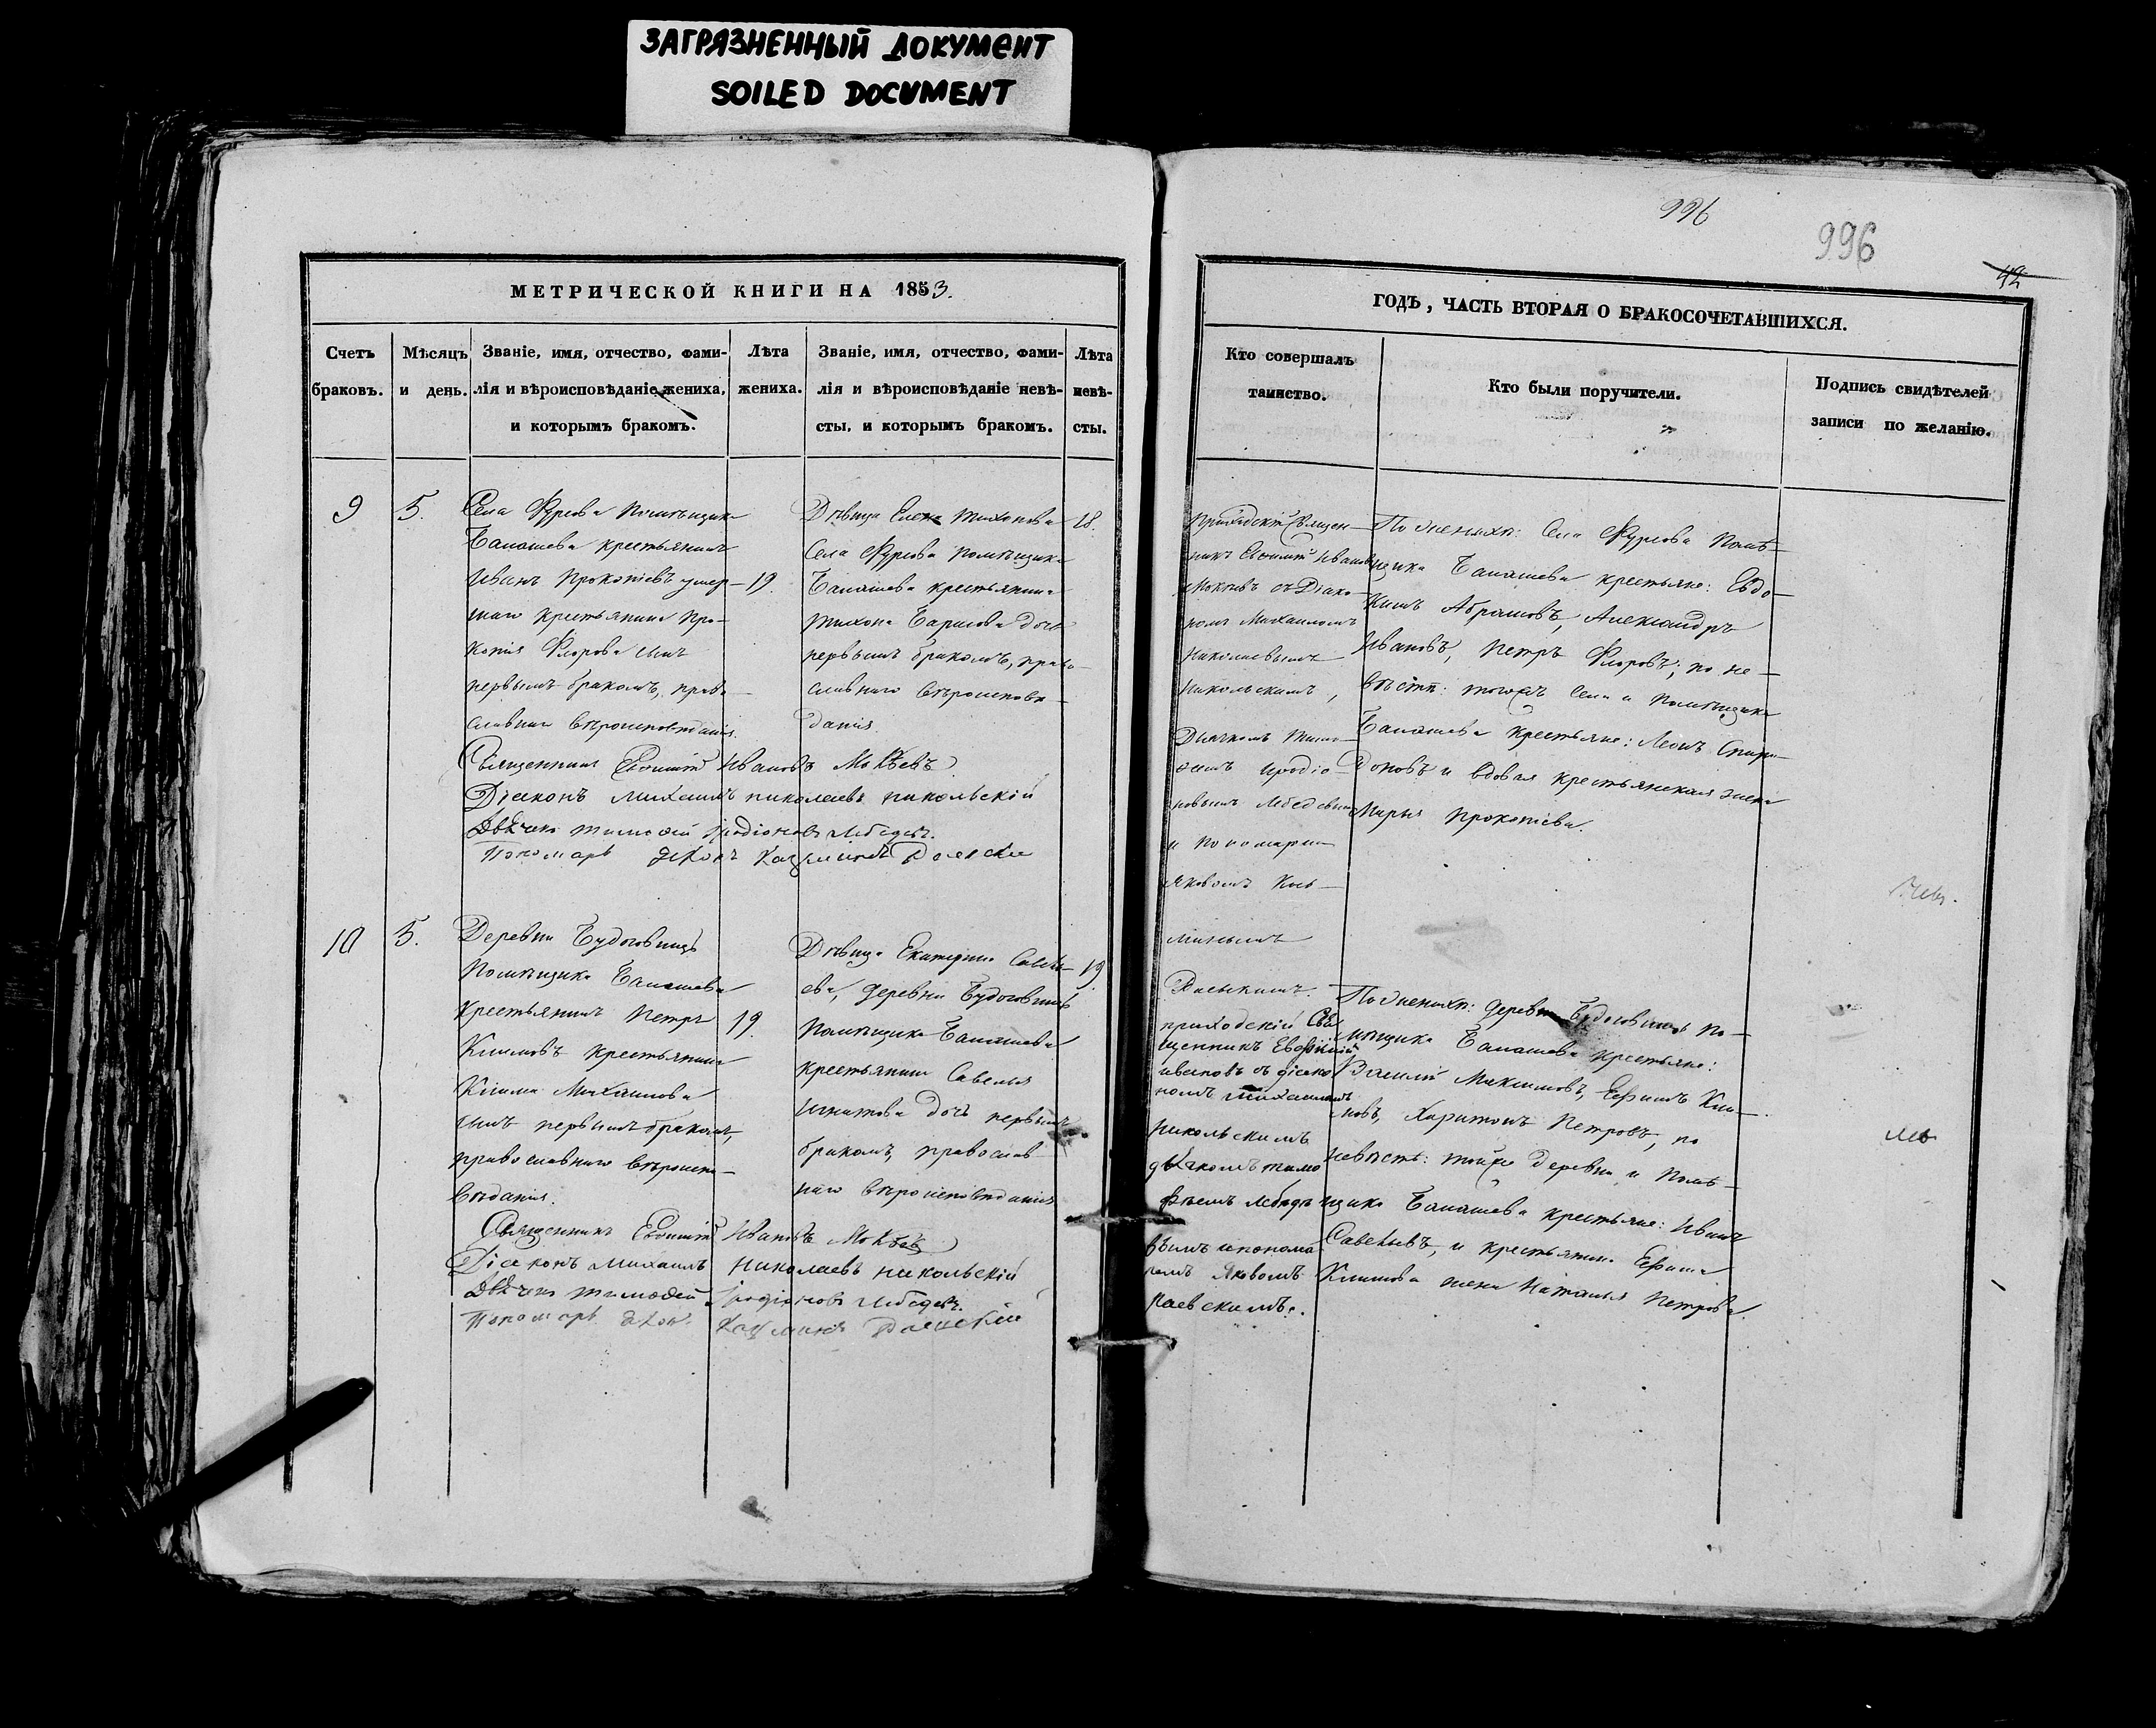 ЗАГРЯЗНЕННЫЙ ДОКУМЕНТ
SOILED DOCUMENT
МЕТРИЧЕСКОЙ КНИГИ НА 1853.
Счетъ браковъ.
Мѣсяцъ и день.
Званіе, имя, отчество, фами-
лія и вѣроисповѣданіе жениха,
и которымъ бракомъ.
Лѣта
жениха.
Званіе, имя, отчество, фами-
лія и вѣроисповѣданіе невѣ-
сты, и которымъ бракомъ.
Лѣта
невѣ-
сты.
9
5.
Села Фурсова помѣщика
Балашева крестьянинъ
Иванъ Прокопіевъ умер-
шаго крестьянина Про-
копія Флорова сынъ
первымъ бракомъ, право-
славнаго вѣроисповѣданія.
19.
Дѣвица Елена Тихонова
Села Фурсова помѣщика
Балашева крестьянина
Тихона Борисова дочь
первымъ бракомъ, право-
славнаго вѣроисповѣ-
данія.
18.
Священникъ Евѳимій Ивановъ Мокѣевъ
Діаконъ Михаилъ Николаевъ Никольскій
Дьячекъ Тимоѳей Иродіоновъ Лебедевъ.
Пономарь Яковъ Казминъ Раевскій
10
5.
Деревни Будоговищъ
помѣщика Балашева
крестьянинъ Петръ
Климовъ крестьянина
Клима Михаилова
сынъ первымъ бракомъ,
православнаго вѣроиспо-
вѣданія.
19.
Дѣвица Екатерина Савель-
ева, деревни Будоговищъ
помѣщика Балашева
крестьянина Савелья
Игнатова дочь первымъ
бракомъ, православ-
наго вѣроисповѣданія
19.
Священникъ Евѳимій Ивановъ Мокѣевъ
Діаконъ Михаилъ Николаевъ Никольскій
Дьячекъ Тимоѳей Иродіоновъ Лебедевъ.
Пономарь Яковъ Казминъ Раевскій
996
996
42
ГОДЪ, ЧАСТЬ ВТОРАЯ О БРАКОСОЧЕТАВШИХСЯ.
Кто совершалъ
таинство.
Кто были поручители.
Подпись свидѣтелей
записи по желанію.
Приходскій Священ-
никъ Евѳимій Ивановъ
Мокѣевъ съ Діако-
номъ Михаиломъ
Николаевымъ
Никольскимъ,
Дьячкомъ Тимо-
ѳеемъ Иродіо-
новымъ Лебедевымъ
и Пономаремъ
Яковомъ Коз-
минымъ
Раевскимъ.
По женихѣ: Села Фурсова помѣ-
щика Балашева крестьяне: Евдо-
кимъ Абрамовъ, Александръ
Ивановъ, Петръ Флоровъ; по не-
вѣстѣ: тогожъ села и помѣщика
Балашева крестьяне: Леонъ Спири-
доновъ и вдовая крестьянская жена
Марья Прокопіева.
приходскій Свя-
щенникъ Евфимій
Ивановъ съ діако-
номъ Михаиломъ
Никольскимъ
дьячкомъ Тимо-
фѣемъ Лебеде-
вымъ и понома-
ремъ Яковомъ
Раевскимъ.
По женихѣ: деревни Будоговищъ по-
мѣщика Балашева крестьяне:
Василій Максимовъ, Ефимъ Кли-
мовъ, Харитонъ Петровъ, по
невѣстѣ: тойже деревни и помѣ-
щика Балашева крестьяне: Иванъ
Савельевъ, и крестьянина Ефима
Климова жена Наталья Петрова.